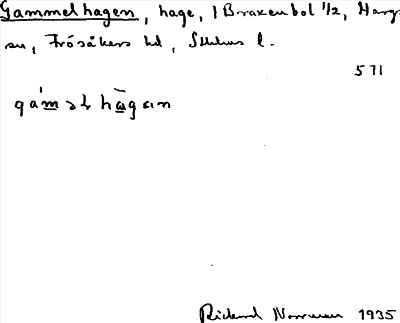 Gammelhagen, hage, 1 Braxenbol 1/2, Harg
sn, Frösåkers hd, Sthlms l.
571
Rickard Norrman 1935